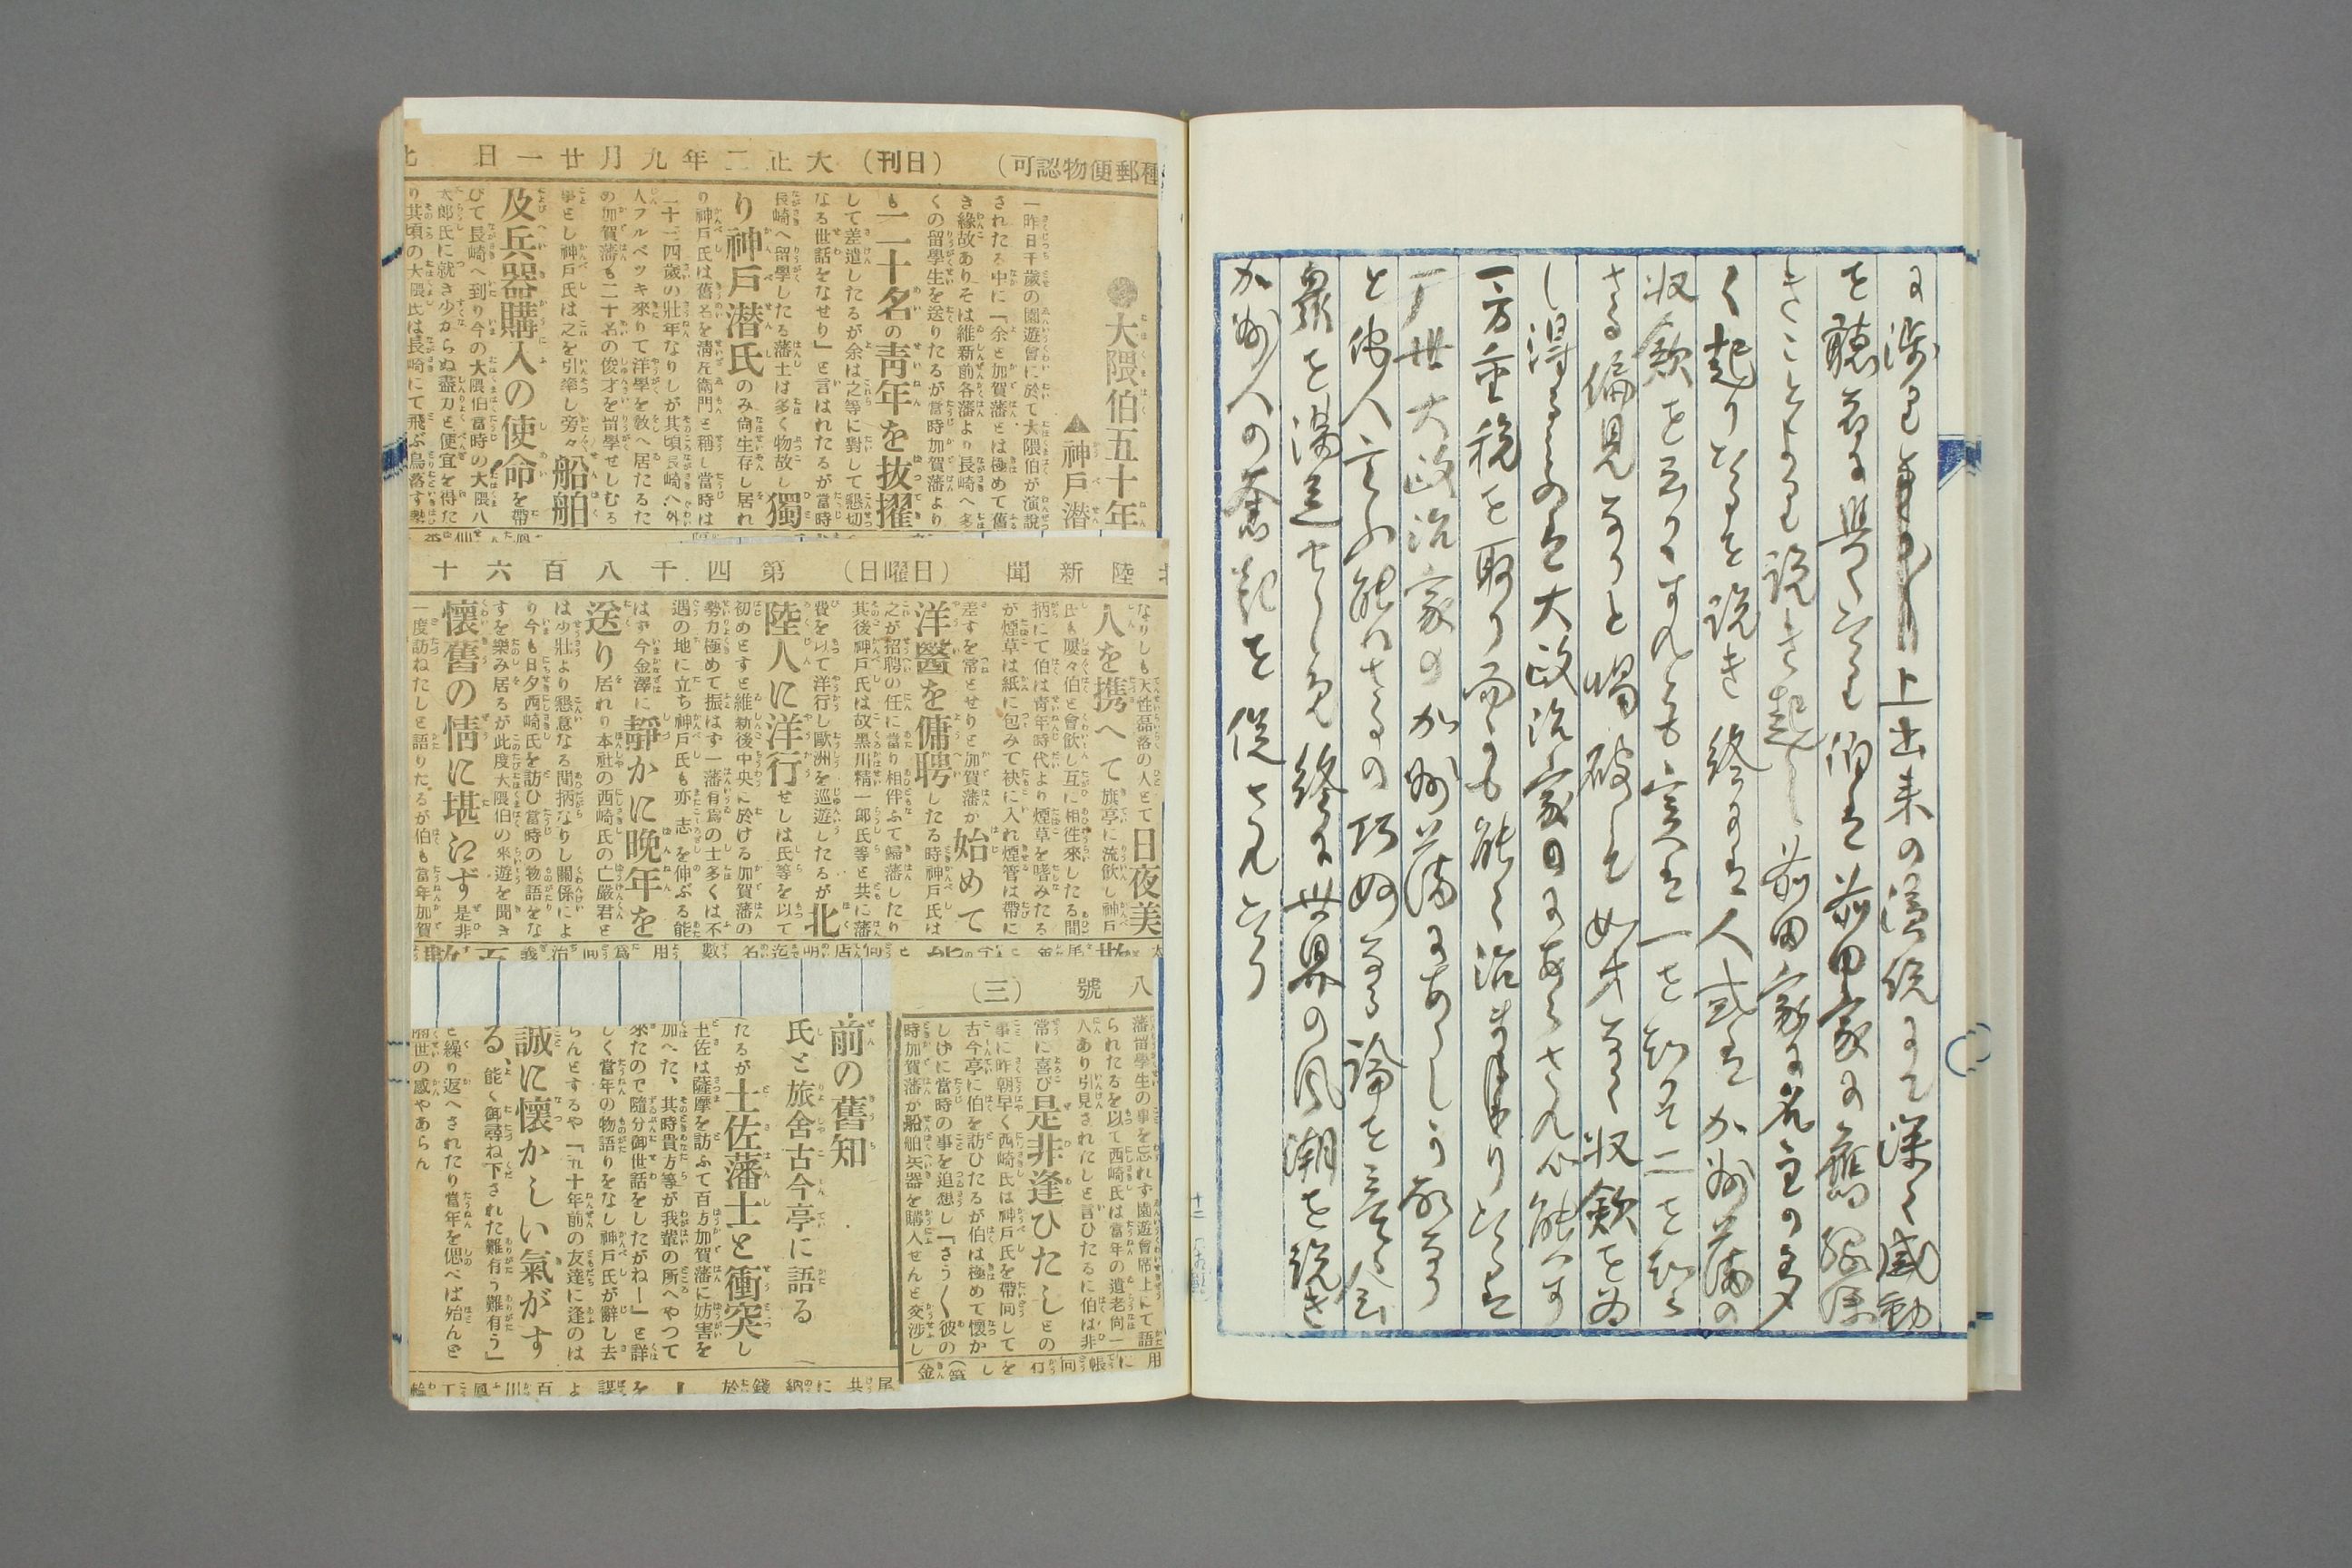 上出来の演説にて深く感動
を聴者に与へたり伯は前田家の旧縁深
きことより説き起し前田家に名主の多
く起りたるを説き終りには人或は加州藩の
収斂を云々すれども実は一を知て二を知ら
さる偏見なりと喝破して如才なく収斂を為
し得るものは大政治家日にあらされは能はす
一方重税を取り而かも能く治まりたるは
大政治家の加州藩にありしり故なり
と他人言ふ能はさるの巧妙なる論を立て会
衆を満足せしめ終に世界の風潮を説き
加州人の奮起を促されたり
種郵便物認可)
(日刊)
大正二年九月廿一日
北
●大隈伯五十年
▲神戸潜
一昨日千歳の園遊會に於て大隈伯が演說
されたる中に「余と加賀藩とは極めて舊
き緣故ありそは維新前各藩より長崎へ多
くの留學生を送りたるが當時加賀藩より
も二十名の青年を抜擢
して差遣したるが余は之等に對して懇切
なる世話をなせり」と言はれたるが當時
長崎へ留學したる藩士は多く物故し獨
り神戸潜氏のみ尙生存し居れ
り神戸氏は舊名を淸左衛門と稱し當時は
二十三四歲の壯年なりしが其頃長崎へ外
人フルベッキ來りて洋學を敎へ居たるた
め加賀藩も二十名の俊才を留學せしむる
事とし神戸氏は之を引率し旁々船舶
及兵器購入の使命を帶
びて長崎へ到り今の大隈伯當時の大隈八
太郞氏に就き少からぬ盡力と便宜を得た
り其頃の大隈氏は長崎にて飛ぶ鳥落す勢
北陸新聞
(日曜日)
第四千八百六十
なりしも天性磊落の人とて日夜美
人を携へて旗亭に流飮し神戸
氏も屢々伯と會飮し互に相徃來したる間
柄にて伯は靑年時代より煙草を嗜みたる
が煙草は紙に包みて袂に入れ煙管は帶に
差すを常とせりと加賀藩か始めて
洋醫を傭聘したる時神戸氏は
之が招聘の任に當り相伴ふて歸藩したり
其後神戸氏は故黑川精一郞氏等と共に藩
費を以て洋行し歐洲を巡遊したるが北
陸人に洋行せしは氏等を以て
初めとすと維新後中央に於ける加賀藩の
勢力極めて振はず一藩有爲の士多くは不
遇の地に立ち神戸氏も亦志を伸ぶる能
はず今金澤に靜かに晩年を
送り居れり本社の西崎氏の亡嚴君と
は少壯より懇意なる間柄なりし關係によ
り今も日夕西崎氏を訪ひ當時の物語をな
すを樂み居るが此度大隈伯の來遊を聞き
懷舊の情に堪江ず是非
一度訪ねたしと語りたるが伯も當年加賀
八號
(三)
藩留學生の事を忘れず園遊會席上にて語
られたるを以て西崎氏は當年の遺老尙一
人あり引見されたしと言ひたるに伯は非
常に喜び是非逢ひたしとの
事に昨朝早く西崎氏は神戸氏を帶同して
古今亭に伯を訪ひたるが伯は極めて懷か
しげに當時の事を追想し『さう〱彼の
時加賀藩が船舶兵器を購入せんと交渉し
前の舊知
氏と旅舍古今亭に語る
たるが土佐藩士と衝突し
土佐は薩摩を訪ふて百方加賀藩に妨害を
加へた、其時貴方等が我輩の所へやつて
來たので隨分御世話をしたがねー」と詳
しく當年の物語りをなし神戸氏が辭し去
らんとするや『五十年前の友達に逢のは
誠に懷かしい氣がす
る、能く御尋ね下された難有う難有う」
と繰り返へされたり當年を偲べば殆んど
隔世の感やあらん